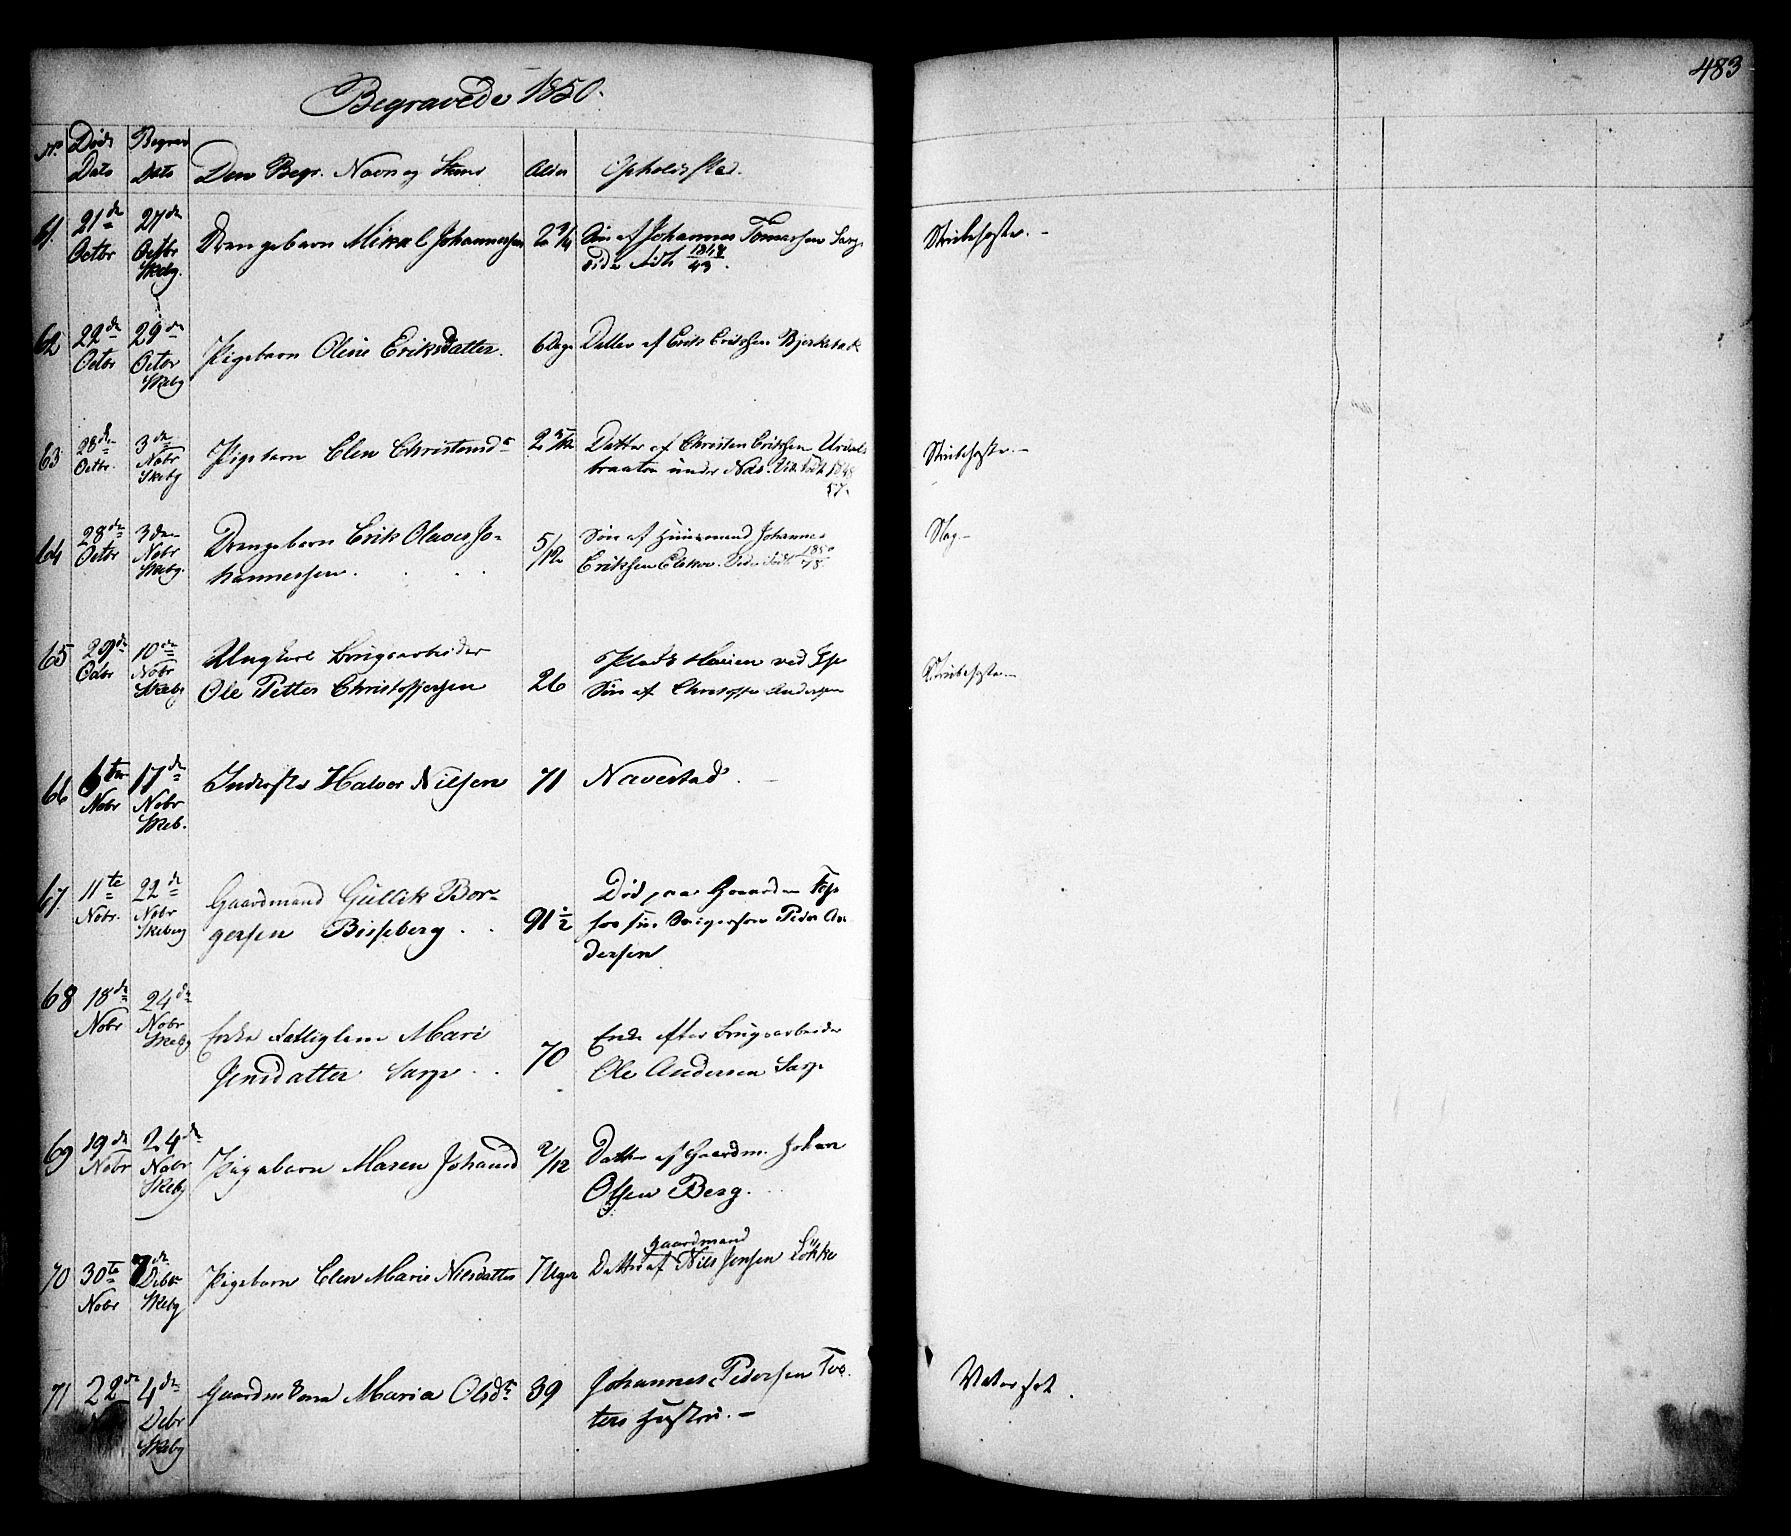 Begravede 1850.
483
No Døds Dato Begrav Dato Den Begr. Navn og Stand Alder Opholdssted.
61. 21de Octbr 27de Octbr Skebg. Drengebarn Mikal Johannessen 2 3/4 Søn af Johannes Tomassen Sarp
født 1848/43. Stribehoste. -
62 22de Octbr 29de Octbr Skebg Pigebarn Oline Eriksdatter. 6 Dage Datter af Erik Eriksen Bjerkebæk
63 28de Octbr. 3de Nobr Skebg Pigebarn Elen Christensdr 2 5/12 Datter af Christen Eriksen
braaten under Næs. født 1848
57. Stribehoste. -
64 28de Octbr 3den Nobr Skebg. Drengebarn Erik Olaves Jo-
hannessen. 5/12 Søn af Huusmand Johannes
Eriksen 1850/48. Slag -
65 29de Octbr 10de Nobr Skebg Ungkarl Brugsarbeider
Ole Petter Christoffersen 26 Plads Haven ved
Søn af Christoffer Andersen Stribehoste. -
66 6te Nobr 17de Nobr Skeb. Inderste Halvor Nilsen 71 Navestad.
67. 11te Nobr. 22de Nobr Skebg Gaardmand Gullik Bor-
gersen Bisseberg. 91 1/2 Død paa Gaarden
hos sin Svigersøn Peder An-
dersen
68 18de Nobr 24de Nobr Skebg Enke Fattiglem Mari
Jensdatter Sarp 70 Enke efter Brugsarbeider
Ole Andersen Sarp
69 19de Nobr 24de Nobr Skebg Pigebarn Maren Johansd 2/12 Datter af Gaardm. Johan
Olsen Berg.
70 30te Nobr 7de Debr Skebg Pigebarn Elen Marie Nilsdatter 7 Uger Datter af gaardmand Nils Jensen Løkke
71 22de 4de Debr Skebg Gaardm Kone Maria Olsdr 39 Johannes Pedersen Tve-
ters Hustru. - Vatersot.